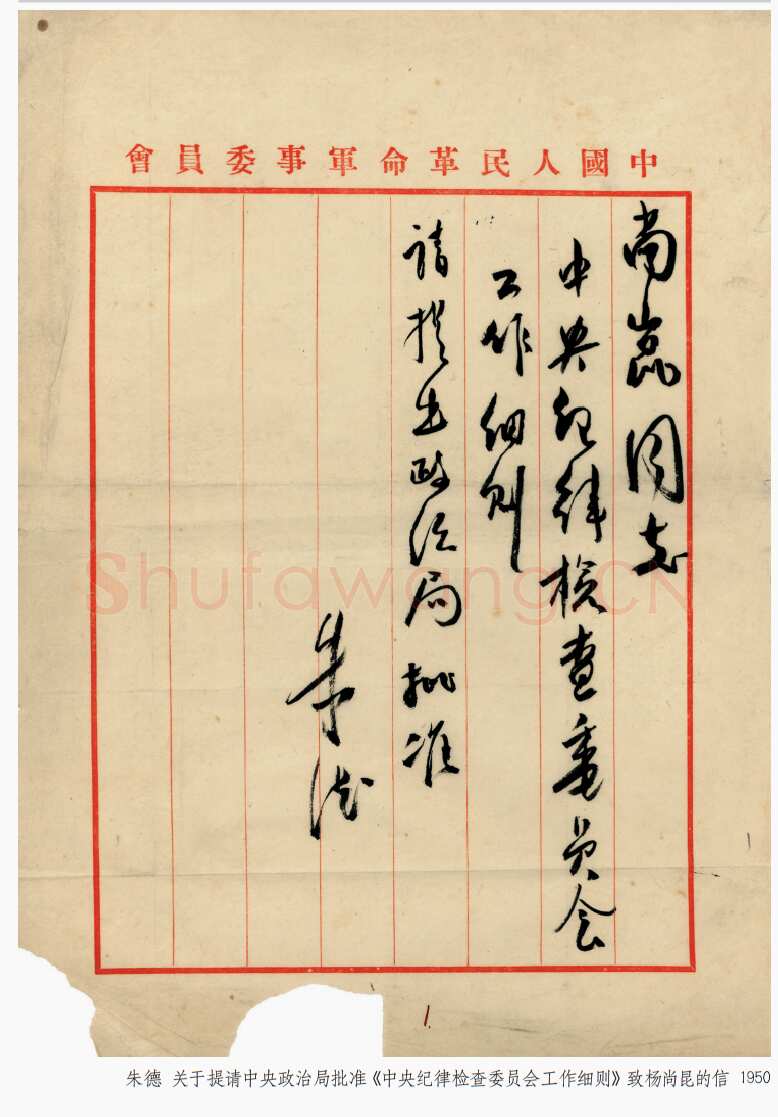 中國人民革命軍事委員會
尚崑同志
中央纪律检查委员会
工作细则
请提出政治局批准
朱德
Shufawang.CN
1
朱德 关于提请中央政治局批准《中央纪律检查委员会工作细则》致杨尚昆的信 1950